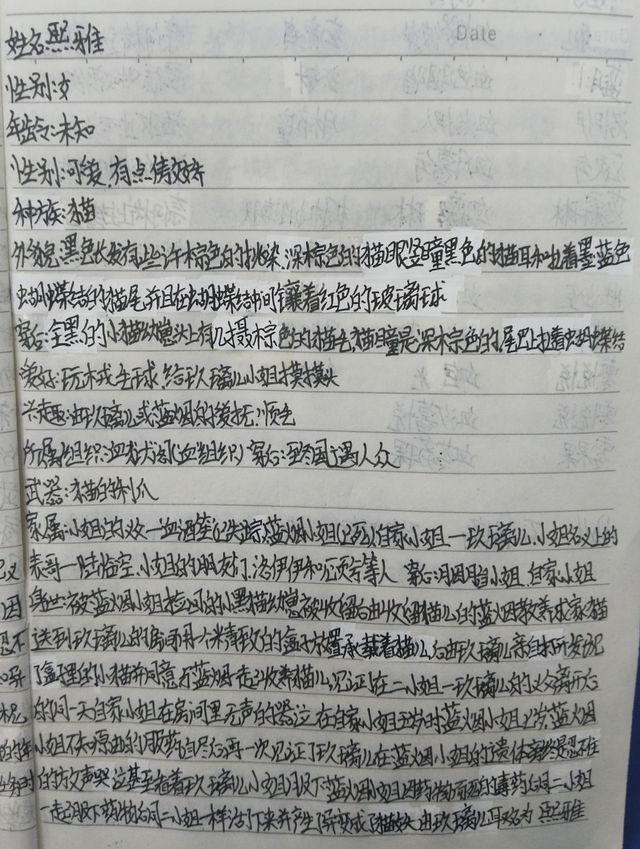 Date
姓名:熙雅
性别:女
年龄:未知
性别:可爱,有点傲娇
种族:猫
外貌:黑色长发有些许棕色的挑染,深棕色的猫眼竖瞳黑色的猫耳和拉着墨蓝色
蝴蝶结的猫尾,并且在蝴蝶结中间镶着红色的玻璃球
案后:全黑的小猫幼崽头上有几撮棕色的猫毛,猫瞳是深棕色的,尾巴上拉着蝴蝶结
爱好:玩木戎毛球,给玖璃儿小姐摸摸头
兴趣:由玖璃儿或蓝烟的爱抚,顺毛
所属组织:血杀阁(血组织) 案后:至冬国 愚人众
武器:猫的利爪
家属:小姐的父一血酒笙(已失踪)蓝烟小姐(已死)自家小姐一玖璃儿,小姐名义上的
表哥一陆临空,小姐的朋友们,洛伊伊和等人 案后:月因月自小姐,自家小姐
身世:被蓝烟小姐捡回的小黑猫幼崽被收留由收留猫儿的蓝烟教养成家猫
送到玖璃儿的房间用六米精致的盒子承载着猫儿,后由玖璃儿亲自打开发现
了盒子里的小猫并同意和蓝烟一起收养猫儿,见证在二小姐一玖璃儿的父离开后
的同一天自家小姐在房间里无声的哭泣,在自家小姐五岁时蓝烟小姐岁蓝烟
小姐不知原由的服药自尽后再一次见证了玖璃儿在蓝烟小姐的遗体旁忍不住
的放声哭泣甚至看着玖璃儿小姐服下蓝烟小姐因药物而死的毒药,同二小姐
一起服下药物,同二小姐一样活了下来并产生了异变成了猫娘,由玖璃儿取名为 熙雅